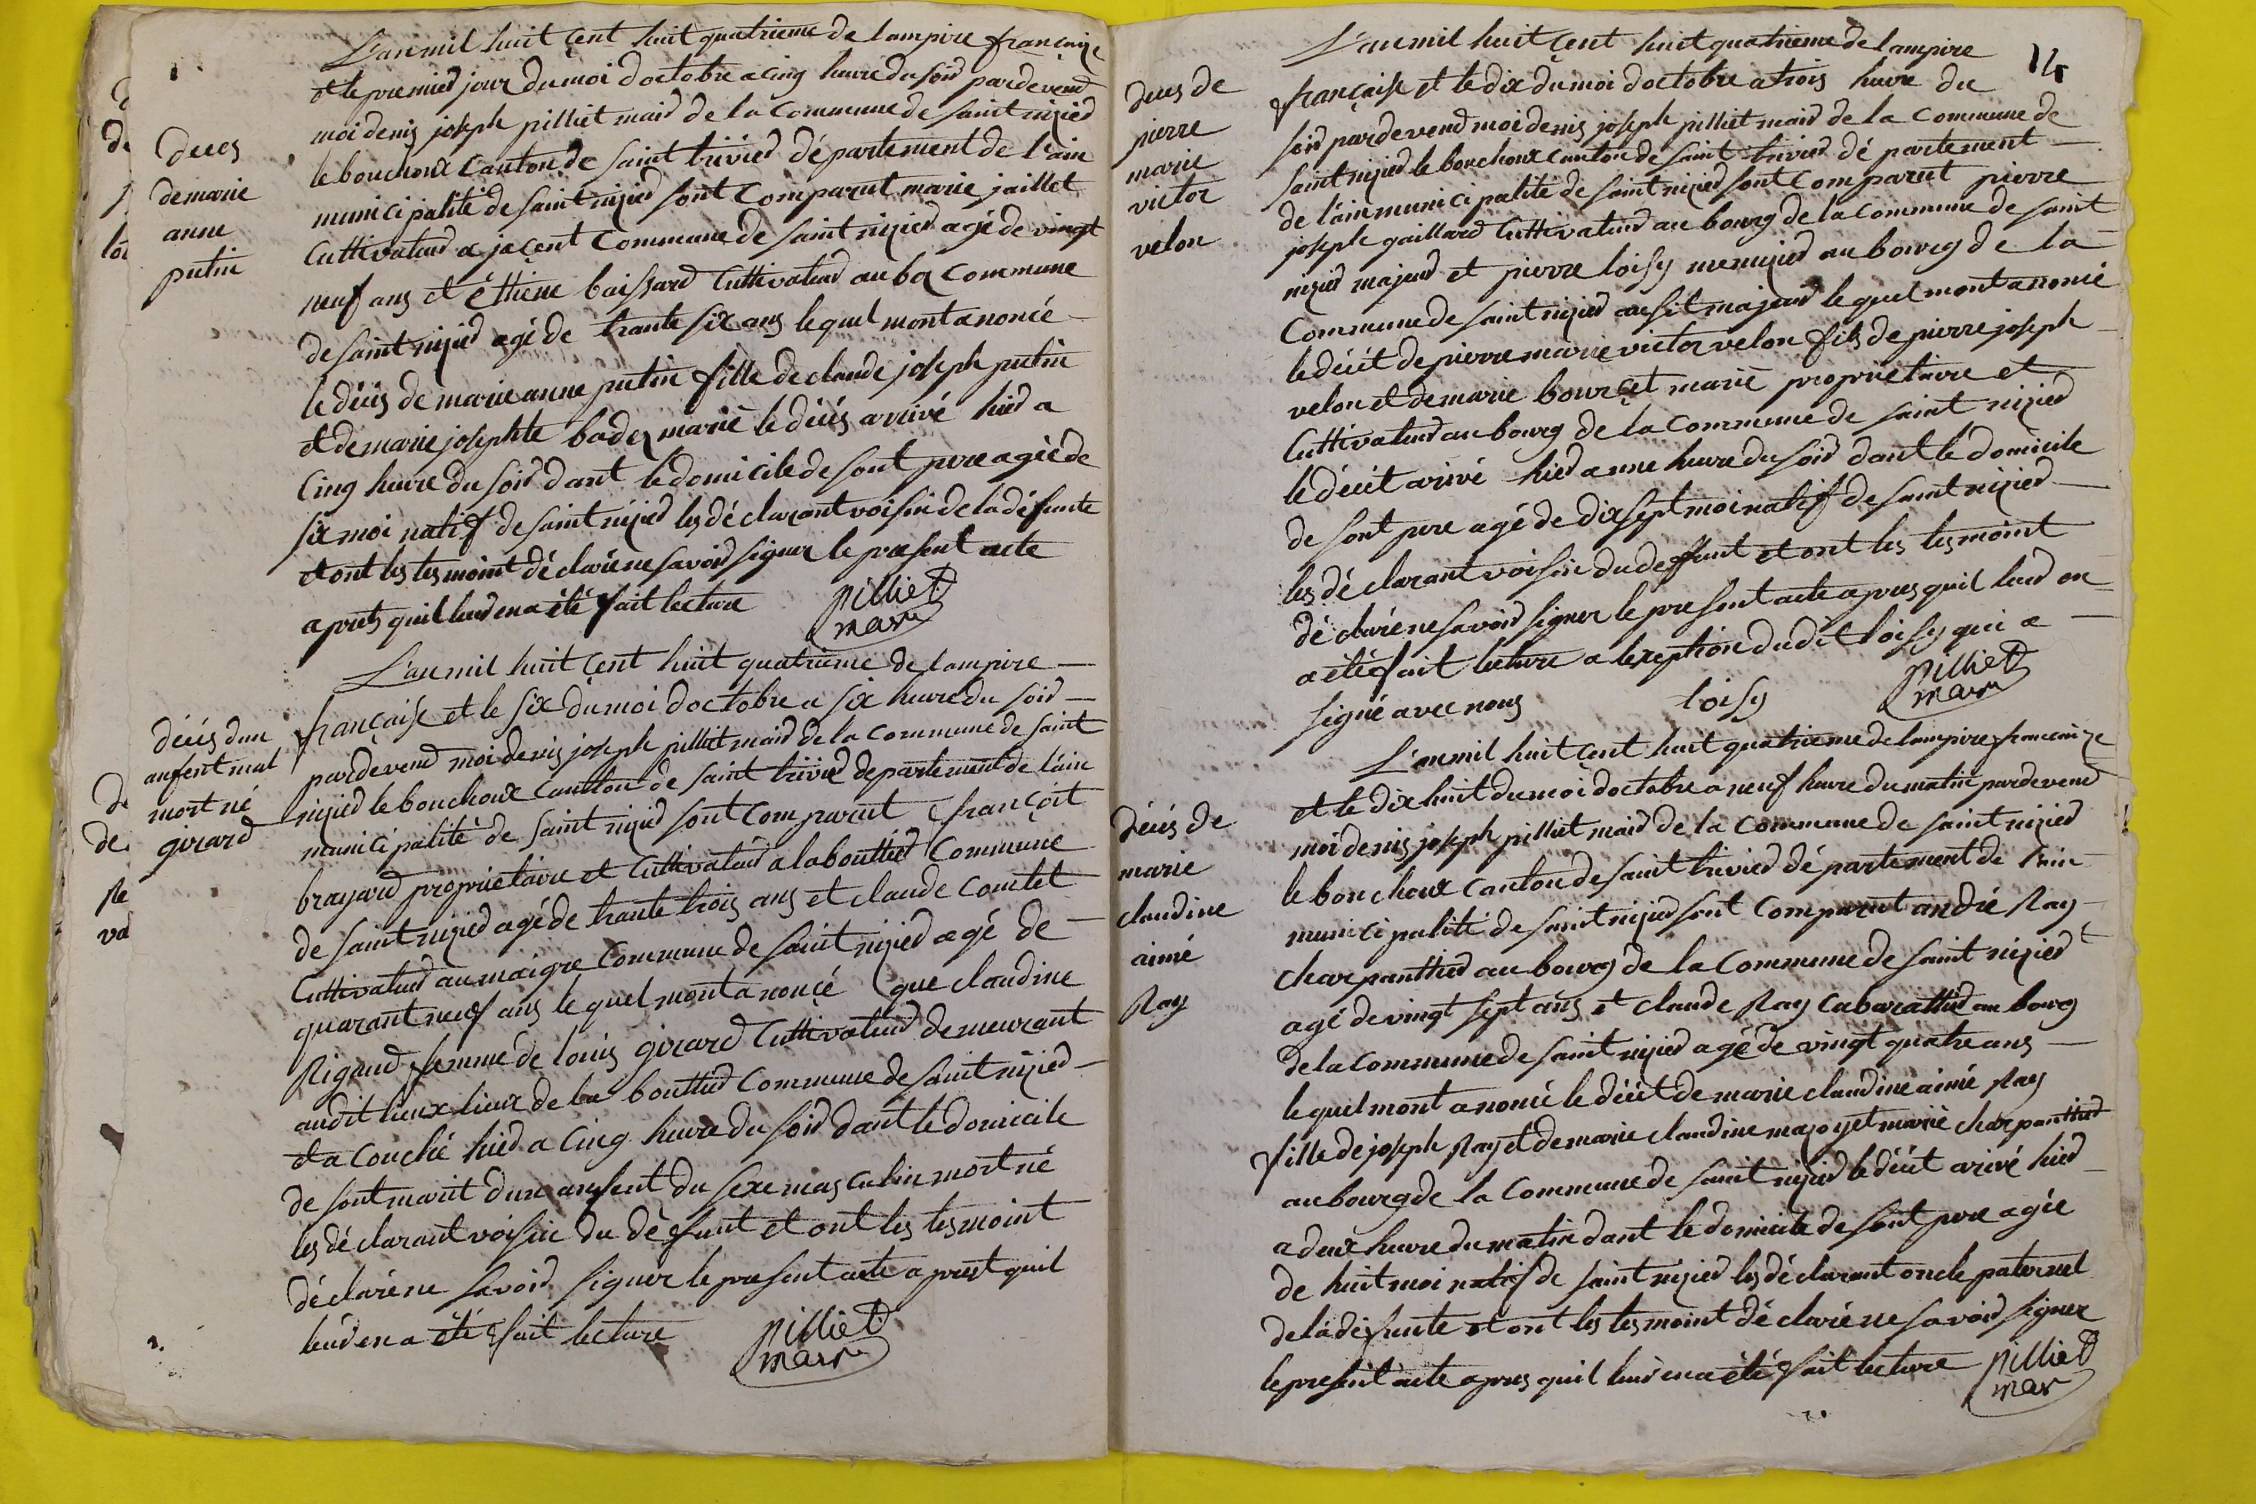 L'an mil huit çent huit quatrieme de lampire françaize
et le premied jour du moi doctobre a cinq heure du soid pardevend
moi denis joseph pilliet maid de la Commune de saint nizied
le bouchoux Canton de saint trivied département de l'ain
munici palité de saint nizied sont Comparut marie jaillet
Cultivateud a jaçent Commune de saint nizied agé de vingt
neuf ans et éttiene baissard Cultivateud au bOZ Commune
de saint nizied agé de trante six ans lequel mont anoncé
le déçis de marie anne putin fille de claude joseph putin
et de marie josephte badez marié le déçés arrivé hied a
Cinq heure du soid dant le domicile de sont pere agéé de
six moi natif de saint nizied les déclarant voisin de la défunte
et ont les tesmoint déclaré ne savoid signer le present acte
aprets quil leud en a été fait lecture
pilliet
mair
decés
de marie
anne
putin
L'an mil huit çent huit quatrieme de lampire
française et le six du moi doctobre a six heure du soid
pardevend moi denis joseph pilliet maid de la Commune de saint
nizied le bouchoux Canton de saint trivied departement de lain
munici palité de saint nizied sont Comparut françoit
brayard propriétaire et Cultivateud a la bouttied Commune
de saint nizied agé de trante trois ans et claude Comtet
Cultivateud au maigre Commune de saint nizied agé de
quarant neuf ans le quel mont anonçé que claudine
Rigaud femme de louis girard Cultivateud demeurant
audit lieux lieux de la bouttied Commune de saint nizied
et a Couché hied a Cinq heure du soid dant le domicile
de sont marit dun anfent du sexe masculin mort né
les déclarant voisin du défunt et ont les tesmoint
déclaré ne savoid signer le present acte a prest quil
leud en a été fait lecture
pilliet
mair
déçés dun
anfent mal
mort né
girard
14
L'an mil huit çent huit quatrieme de lampire
française et le dix du moi doctobre a trois heure du
soid pardevend moi denis joseph pilliet maid de la Commune de
saint nizied le bouchoux canton de saint trivied dé partement
de l'ain munici palité de saint nizied sont Comparut pierre
joseph gaillard Cultivateud au bourg de la Commune de saint
nizied majeud et pierre loisy menuzied au bourg de la
Commune de saint nizied ausit majeud le quel mont anonié
le déçit de pierre marie victor velon fils de pierre joseph
velon et de marie bourçet marié propriétaire et
Cultivateud au bourg de la Commune de saint nizied
le décit arivé hied a une heure du soid dant le domicile
de sont pere agé de dix sept moi natif de saint nizied
les dé clarant voisin du deffunt et ont les tesmoint
dé claré ne savoid signer le present acte apres quil leud en
a été fait lecture a lexeption dudit loisy qui a
signé avec nous
loisy
pilliet
mair
deces de
pierre
marie
victor
velon
L'an mil huit çent huit quatrieme de lampire françaize
et le dix huit du moi doctobre a neuf heure du matin pardevend
moi denis joseph pilliet maid de la Commune de saint nizied
le bouchoux Canton de saint trivied dé partement de lain
munici palité de saint nizied sont Comparut andré Ray
charpanttied au bourg de la Commune de saint nizied
agé de vingt sept ans et claude Ray Cabarattied au bourg
de la commune de saint nizied agé de vingt quatre ans
le quel mont anonié le décit de marie claudine aimé Ray
fille de joseph Ray et de marie claudine mazoyet marié charpanttied
au bourg de la Commune de saint nizied le décit arivé hied
a deux heure du matin dant le domicile de sont pere agée
de huit moi natif de saint nizied les déclarant oncle paternel
de la défunte et ont les tesmoint dé claré ne savoid signer
le present acte apres quil leud en a été fait lecture
pilliet
mar
déçés de
marie
claudine
aimé
Ray